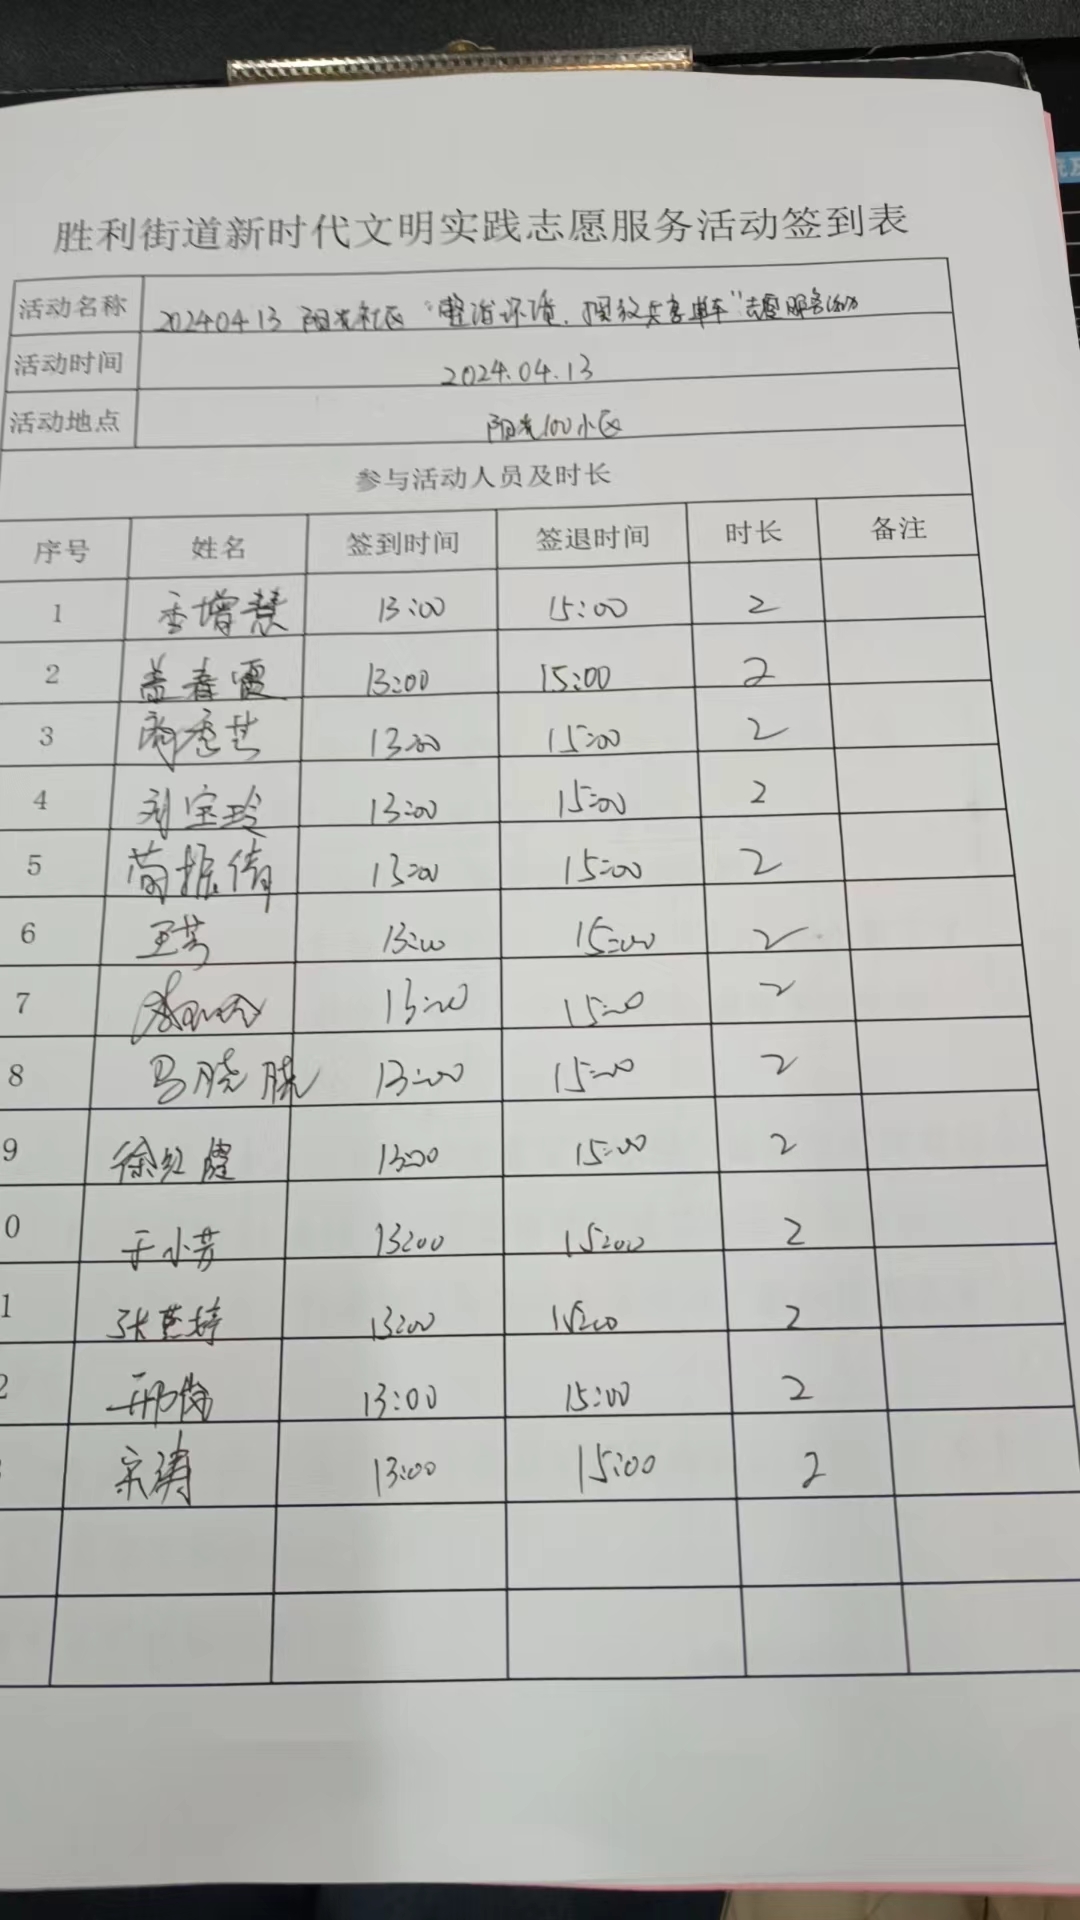 胜利街道新时代文明实践志愿服务活动签到表
活动名称 20240413 阳光社区“整治环境、摆放共享单车”志愿服务活动
活动时间 2024.04.13
活动地点 阳光100小区
参与活动人员及时长
序号 姓名 签到时间 签退时间 时长 备注
1 李增慧 13:00 15:00 2
2 盖春霞 13:00 15:00 2
3 13:00 15:00 2
4 刘宝玲 13:00 15:00 2
5 13:00 15:00 2
6 王芳 13:00 15:00 2
7 13:00 15:00 2
8 马晓晓 13:00 15:00 2
9 徐红霞 13:00 15:00 2
0 于小芳 13:00 15:00 2
1 13:00 15:00 2
2 邢俊 13:00 15:00 2
宋涛 13:00 15:00 2